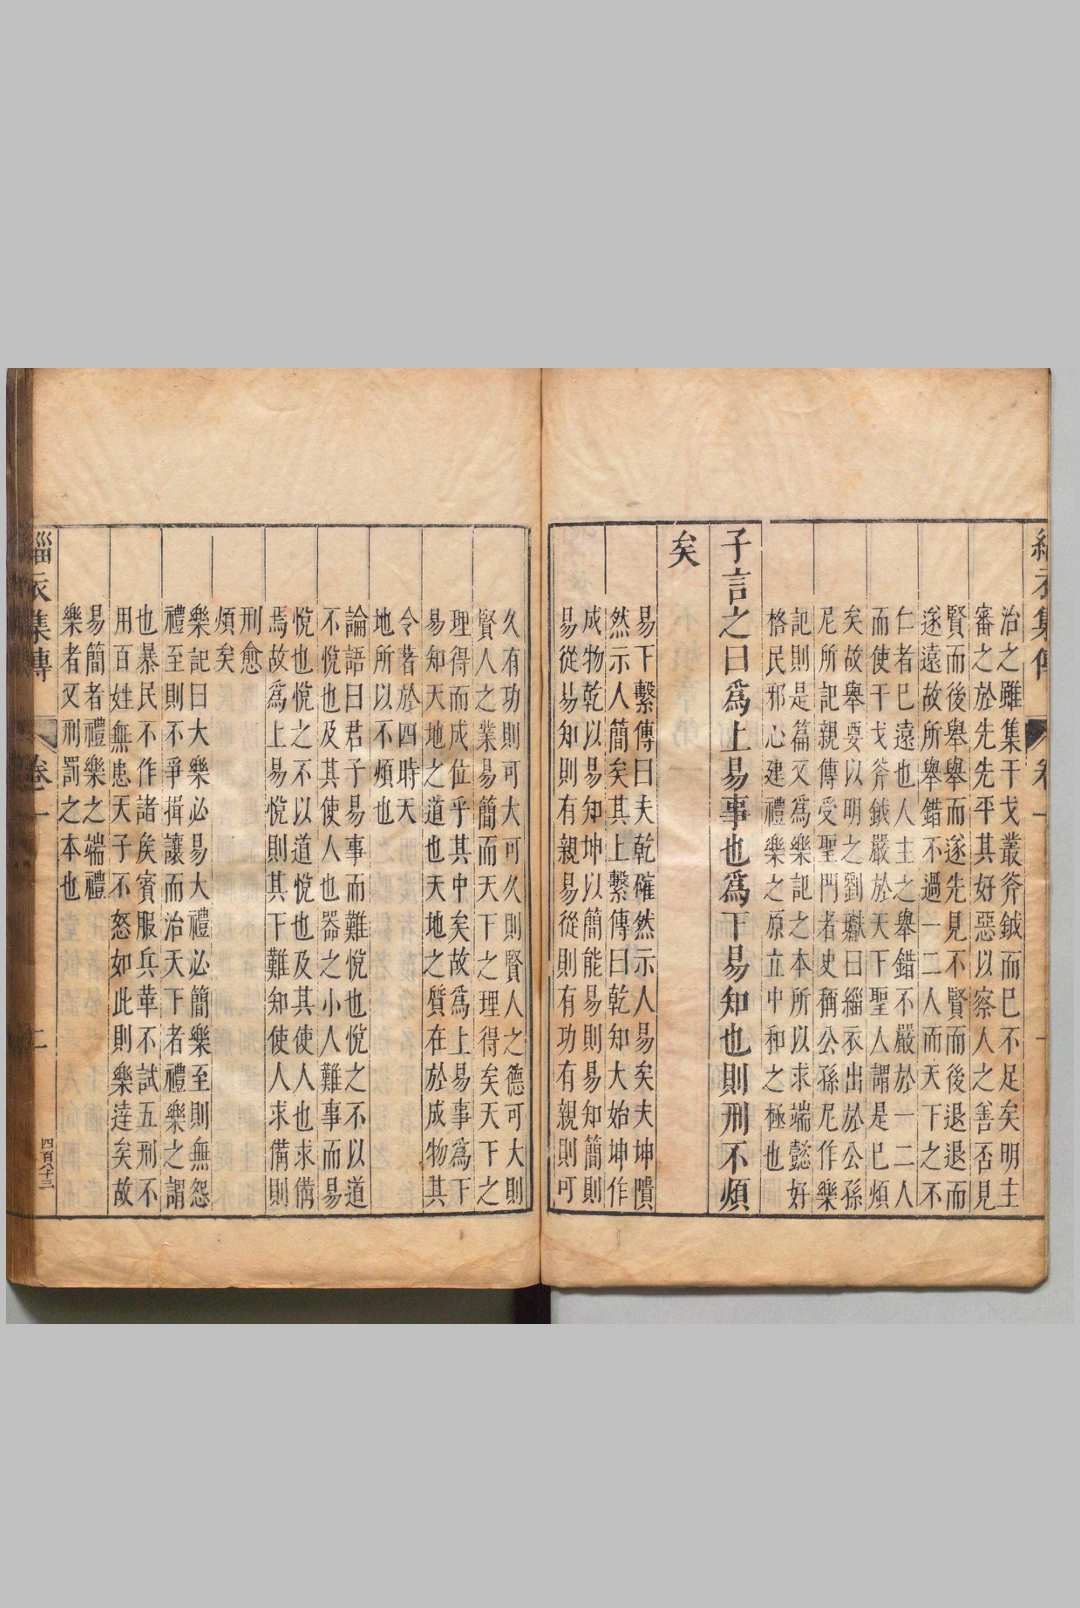 緇衣集傳 卷一
治之雖集干戈叢斧鉞而巳不足矣明主
審之於先先平其好惡以察人之善否見
賢而後舉舉而遂先見不賢而後退退而
遂遠故所舉錯不過一二人而天下之不
仁者巳遠也人主之舉錯不嚴於一二人
而使干戈斧鉞嚴於天下聖人謂是巳煩
矣故舉要以明之劉瓛曰緇衣出於公孫
尼所記親傳受聖門者史稱公孫尼作樂
記則是篇又為樂記之本所以求端懿好
格民邪心建禮樂之原立中和之極也
子言之曰爲上易事也爲下易知也則刑不煩
矣
易下繫傳曰夫乾確然示人易矣夫坤隤
然示人簡矣其上繫傳曰乾知大始坤作
成物乾以易知坤以簡能易則易知簡則
易從易知則有親易從則有功有親則可
久有功則可大可久則賢人之德可大則
賢人之業易簡而天下之理得矣天下之
理得而成位乎其中矣故爲上易事爲下
易知天地之道也天地之質在於成物其
令著於四時天
地所以不煩也
論語曰君子易事而難悅也悅之不以道
不悅也及其使人也器之小人難事而易
悅也悅之不以道悅也及其使人也求備
焉故爲上易悅則其下難知使人求備則
刑愈
煩矣
樂記曰大樂必易大禮必簡樂至則無怨
禮至則不爭揖讓而治天下者禮樂之謂
也暴民不作諸矦賓服兵革不試五刑不
用百姓無患天子不怒如此則樂逹矣故
易簡者禮樂之端禮
樂者又刑罰之本也
緇衣集傳 卷一 二 四百八十三